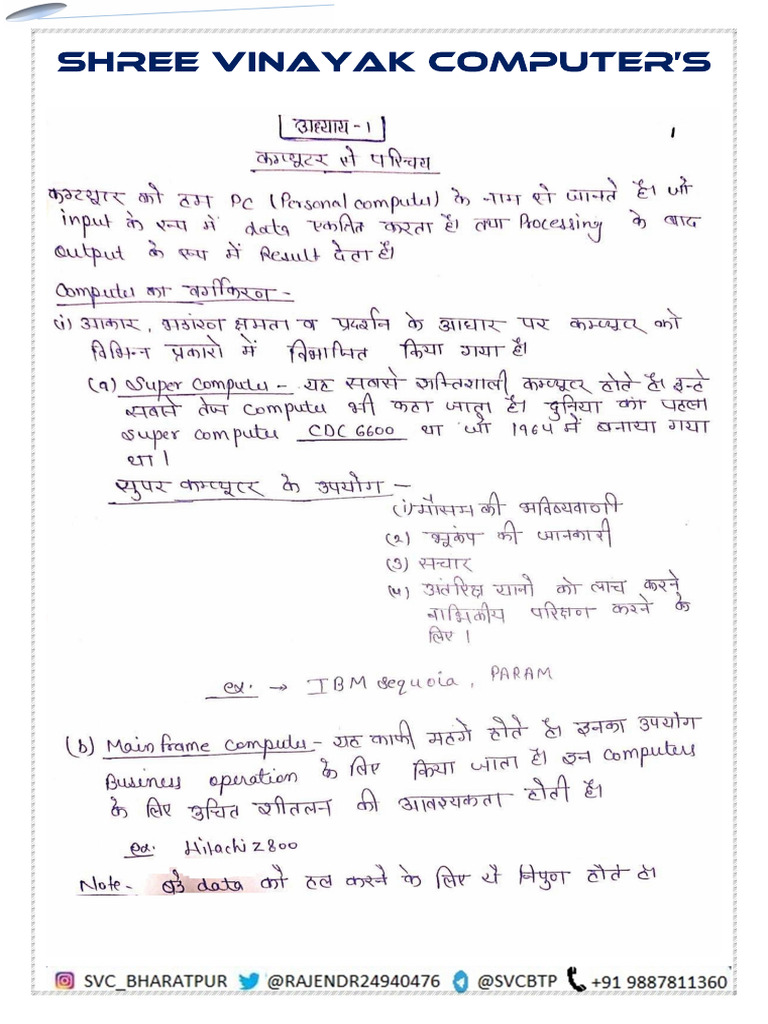 SHREE VINAYAK COMPUTER'S
अध्याय-1
1
कम्प्यूटर से परिचय
कम्प्यूटर को हम PC (Personal computer) के नाम से जानते है। जो
input के रूप में data एकत्रित करता है। तथा Processing के बाद
output के रूप में Result देता है।
Computer का वर्गीकरण -
(i) आकार, भण्डारण क्षमता व प्रदर्शन के आधार पर कम्प्यूटर को
विभिन्न प्रकारो में विभाजित किया गया है।
(a) Super Computer - यह सबसे शक्तिशाली कम्प्यूटर होते है। इन्हे
सबसे तेज Computer भी कहा जाता है। दुनिया का पहला
super computer CDC 6600 था जो 1964 में बनाया गया
था।
सुपर कम्प्यूटर के उपयोग -
(i) मौसम की भविष्यवाणी
(2) भूकंप की जानकारी
(3) संचार
(4) अंतरिक्ष यानो को लाच करने
नाभिकीय परिक्षण करने के
लिए।
ex. → IBM sequoia, PARAM
(b) Main frame computer - यह काफी महगे होते है। इनका उपयोग
Business operation के लिए किया जाता है। इन computers
के लिए उचित शीतलन की आवश्यकता होती है।
ex. Hitachi Z800
Note - बडे data को हल करने के लिए ये निपुण होते है।
SVC_BHARATPUR @RAJENDR24940476 @SVCBTP +91 9887811360